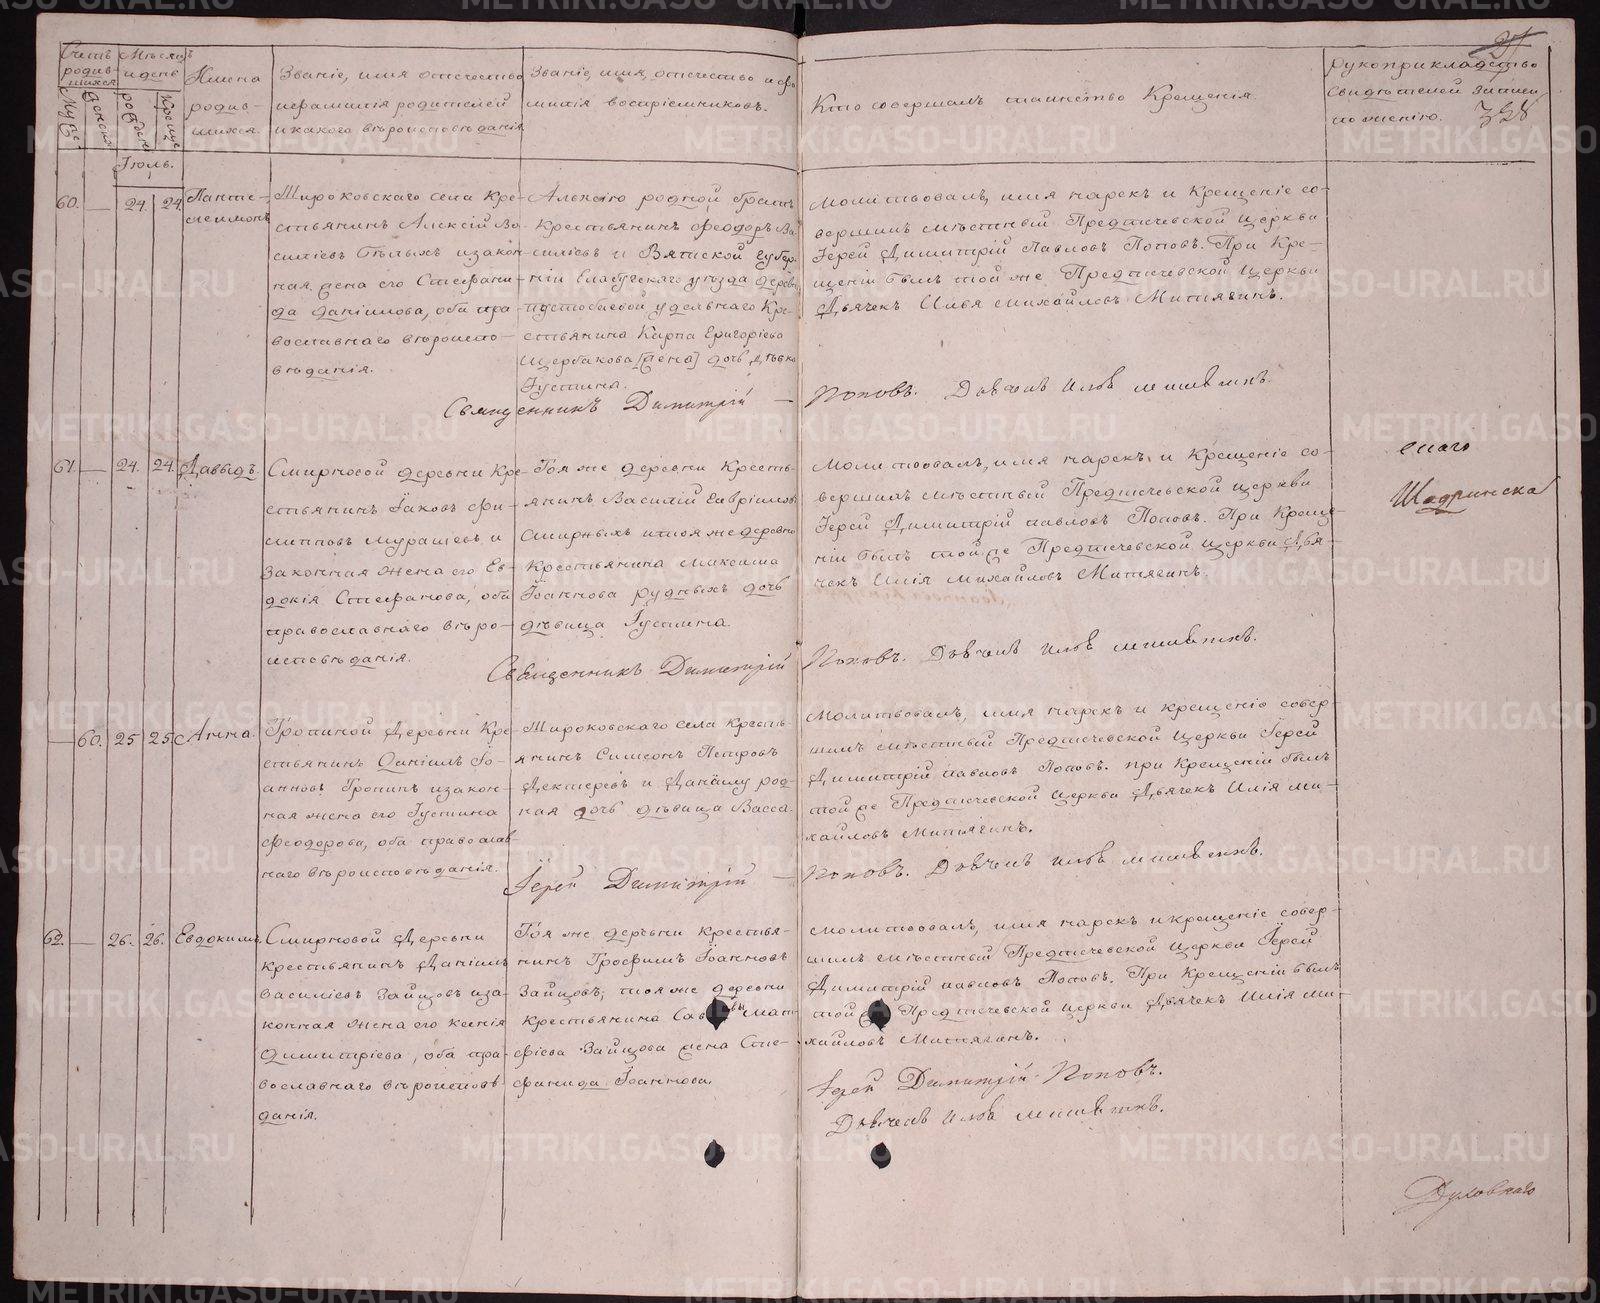 Счетъ родив-шихся
Мужс.
женск.
Мѣсяцъ и день
рожденія
Креще.
Имена родив-шихся.
Званіе, имя отечество и фамилія родителей и какого вѣроисповѣданія
Званіе, имя, отечество и фамилія воспріемниковъ.
Кто совершалъ таинство Крещенія.
Рукоприкладство свидѣтелей записи по желанію.
21
328
Іюль.
60. — 24. 24. Панте-леимонъ
Широковскаго села Кре-
стьянинъ Алексій Ва-
силіевъ Бѣлыхъ и закон-
ная жена его Стефани-
да Даніилова, оба пра-
вославнаго вѣроиспо-
вѣданія.
Алексію родной братъ
Крестьянинъ Феодоръ Ва-
силіевъ и Вятской губер-
ніи Елабужскаго уѣзда деревни
удѣльнаго Кре-
стьянина Карпа Григоріева
Щербакова [жена] дочь дѣвка
Іустина.
Молитвовалъ, имя нарекъ и Крещеніе со-
вершилъ мѣстный Предтечевской церкви
Іерей Димитрій Павловъ Поповъ. При Кре-
щеніи былъ той же Предтечевской церкви
Дьячекъ Илія Михайловъ Митягинъ.
Священникъ Димитрій — Поповъ. Дьячекъ Илія Митягинъ.
61. — 24. 24. Давыдъ.
Смирновой деревни Кре-
стьянинъ Іаковъ Фи-
липповъ Мурашевъ и
законная жена его Ев-
докія Стефанова, оба
православнаго вѣро-
исповѣданія.
Тоя же деревни Кресть-
янинъ Василій Гавріиловъ
Смирныхъ и тоя же деревни
Крестьянина Максима
Іоаннова Рудныхъ дочь
дѣвица Іустина.
Молитвовалъ, имя нарекъ и Крещеніе со-
вершилъ мѣстный Предтечевской церкви
Іерей Димитрій Павловъ Поповъ. При Креще-
ніи былъ той же Предтечевской церкви Дья-
чекъ Илія Михайловъ Митягинъ.
Священникъ Димитрій Поповъ. Дьячекъ Илія Митягинъ.
снаго
Шадринска
— 60. 25 25 Анна.
Тропиной Деревни Кре-
стьянинъ Даніилъ Іо-
анновъ Тропинъ и закон-
ная жена его Іустина
Феодорова, оба православ-
наго вѣроисповѣданія.
Широковскаго села Кресть-
янинъ Симеонъ Петровъ
Дектеревъ и Даніилу род-
ная дочь дѣвица Васса.
Молитвовалъ, имя нарекъ и крещеніе совер-
шилъ мѣстный Предтечевской церкви Іерей
Димитрій Павловъ Поповъ. При Крещеніи былъ
той же Предтечевской церкви Дьячекъ Илія Ми-
хайловъ Митягинъ.
Іерей Димитрій — Поповъ. Дьячекъ Илія Митягинъ.
62. — 26. 26. Евдокимъ.
Смирновой Деревни
Крестьянинъ Даніилъ
Василіевъ Зайцовъ и за-
конная жена его Ксенія
Димитріева, оба пра-
вославнаго вѣроисповѣ-
данія.
Тоя же деревни Крестья-
нинъ Трофимъ Іоанновъ
Зайцовъ, тоя же деревни
Крестьянина Мат-
фіева Зайцова жена Сте-
фанида Іоаннова.
Молитвовалъ, имя нарекъ и крещеніе совер-
шилъ мѣстный Предтечевской церкви Іерей
Димитрій Павловъ Поповъ. При Крещеніи былъ
той же Предтечевской церкви Дьячекъ Илія Ми-
хайловъ Митягинъ.
Іерей Димитрій Поповъ.
Дьячекъ Илія Митягинъ.
Духовнаго
METRIKI.GASO-URAL.RU